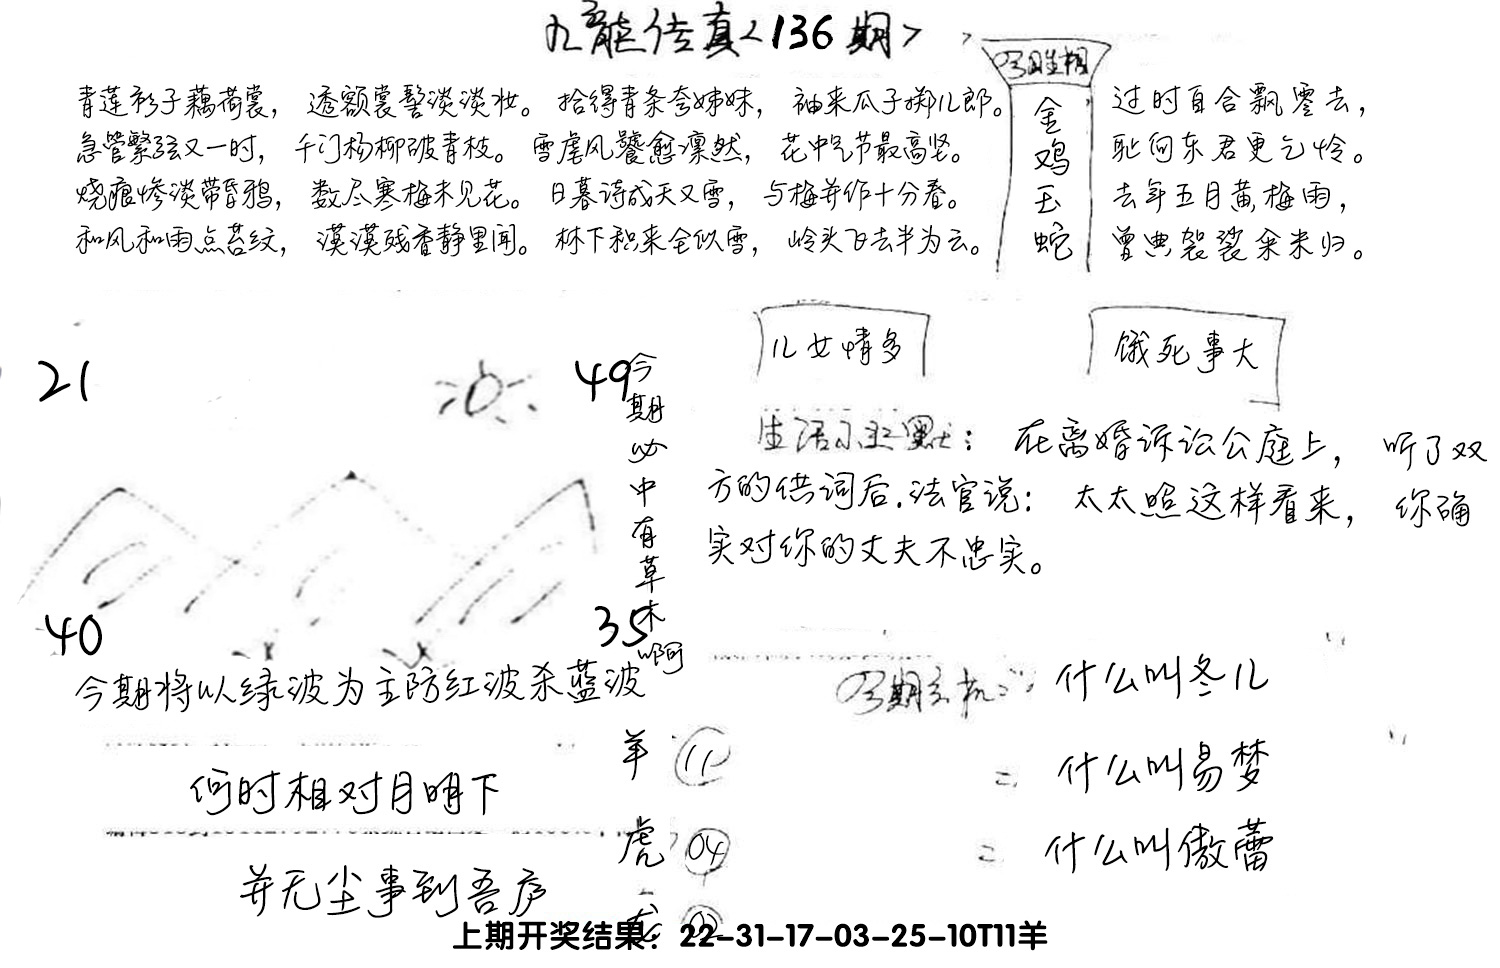 九龙传真<136期>
今期生相
金鸡玉蛇
青莲衫子藕荷裳，透额裳髻淡淡妆。拾得青条夸姊妹，袖来瓜子掷儿郎。
急管繁弦又一时，千门杨柳破青枝。雪虐风饕愈凛然，花中气节最高坚。
烧痕惨淡带昏鸦，数尽寒梅未见花。日暮诗成天又雪，与梅并作十分春。
和风和雨点苔纹，漠漠残香静里闻。林下积来全似雪，岭头飞去半为云。
过时自合飘零去，
耻向东君更乞怜。
去年五月黄梅雨，
曾典袈裟籴米归。
21
49
40
35
今期必中有草木啊
今期将以绿波为主防红波杀蓝波
何时相对月明下
并无尘事到吾庐
羊 11
虎 04
儿女情多
饿死事大
生活小幽默：在离婚诉讼公庭上，听了双
方的供词后.法官说：太太照这样看来，你确
实对你的丈夫不忠实。
今期玄机： 什么叫冬儿
= 什么叫易梦
= 什么叫傲蕾
上期开奖结果：22-31-17-03-25-10T11羊